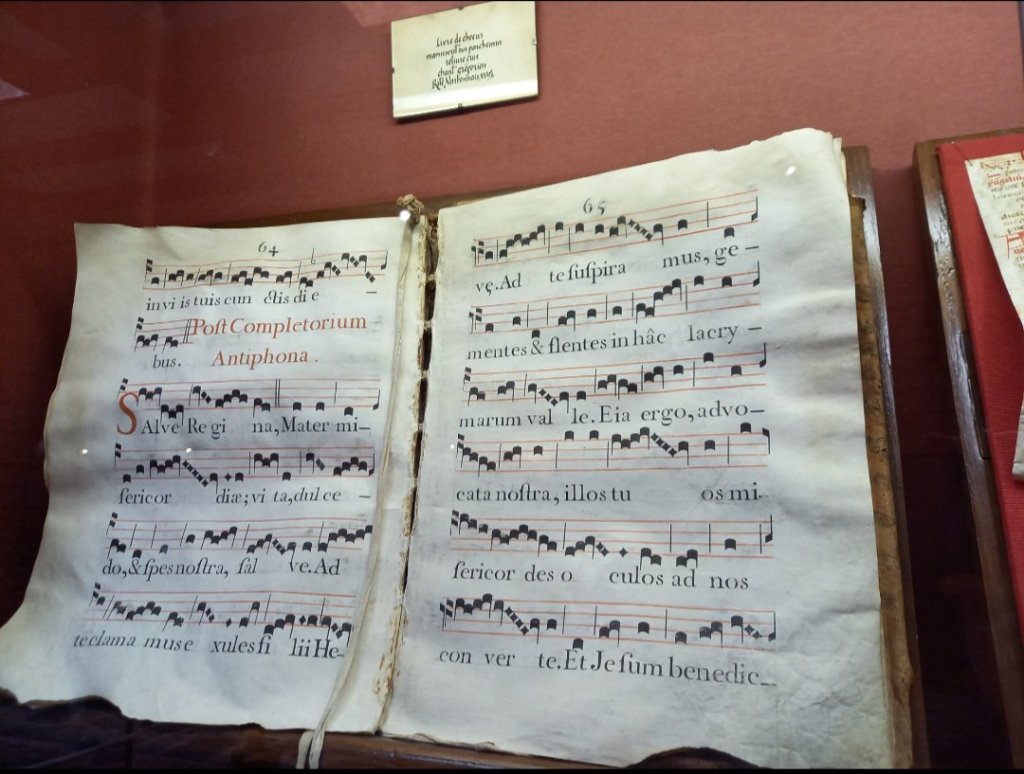 Livre de chœur
manuscrit sur parchemin
reliure cuir
chant grégorien
64
in vi is tuis cun ctis di e –
bus.
Poſt Completorium
Antiphona .
SAlve Re gi na, Mater mi–
ſericor diæ; vi ta, dul ce –
do, & ſpes noſtra, ſal ve. Ad
te clama mus e xules fi lii He–
65
vę. Ad te ſuſpira mus, ge –
mentes & flentes in hâc lacry –
marum val le. Eia ergo, advo–
cata noſtra, illos tu os mi–
ſericor des o culos ad nos
con ver te. Et Je ſum benedic–